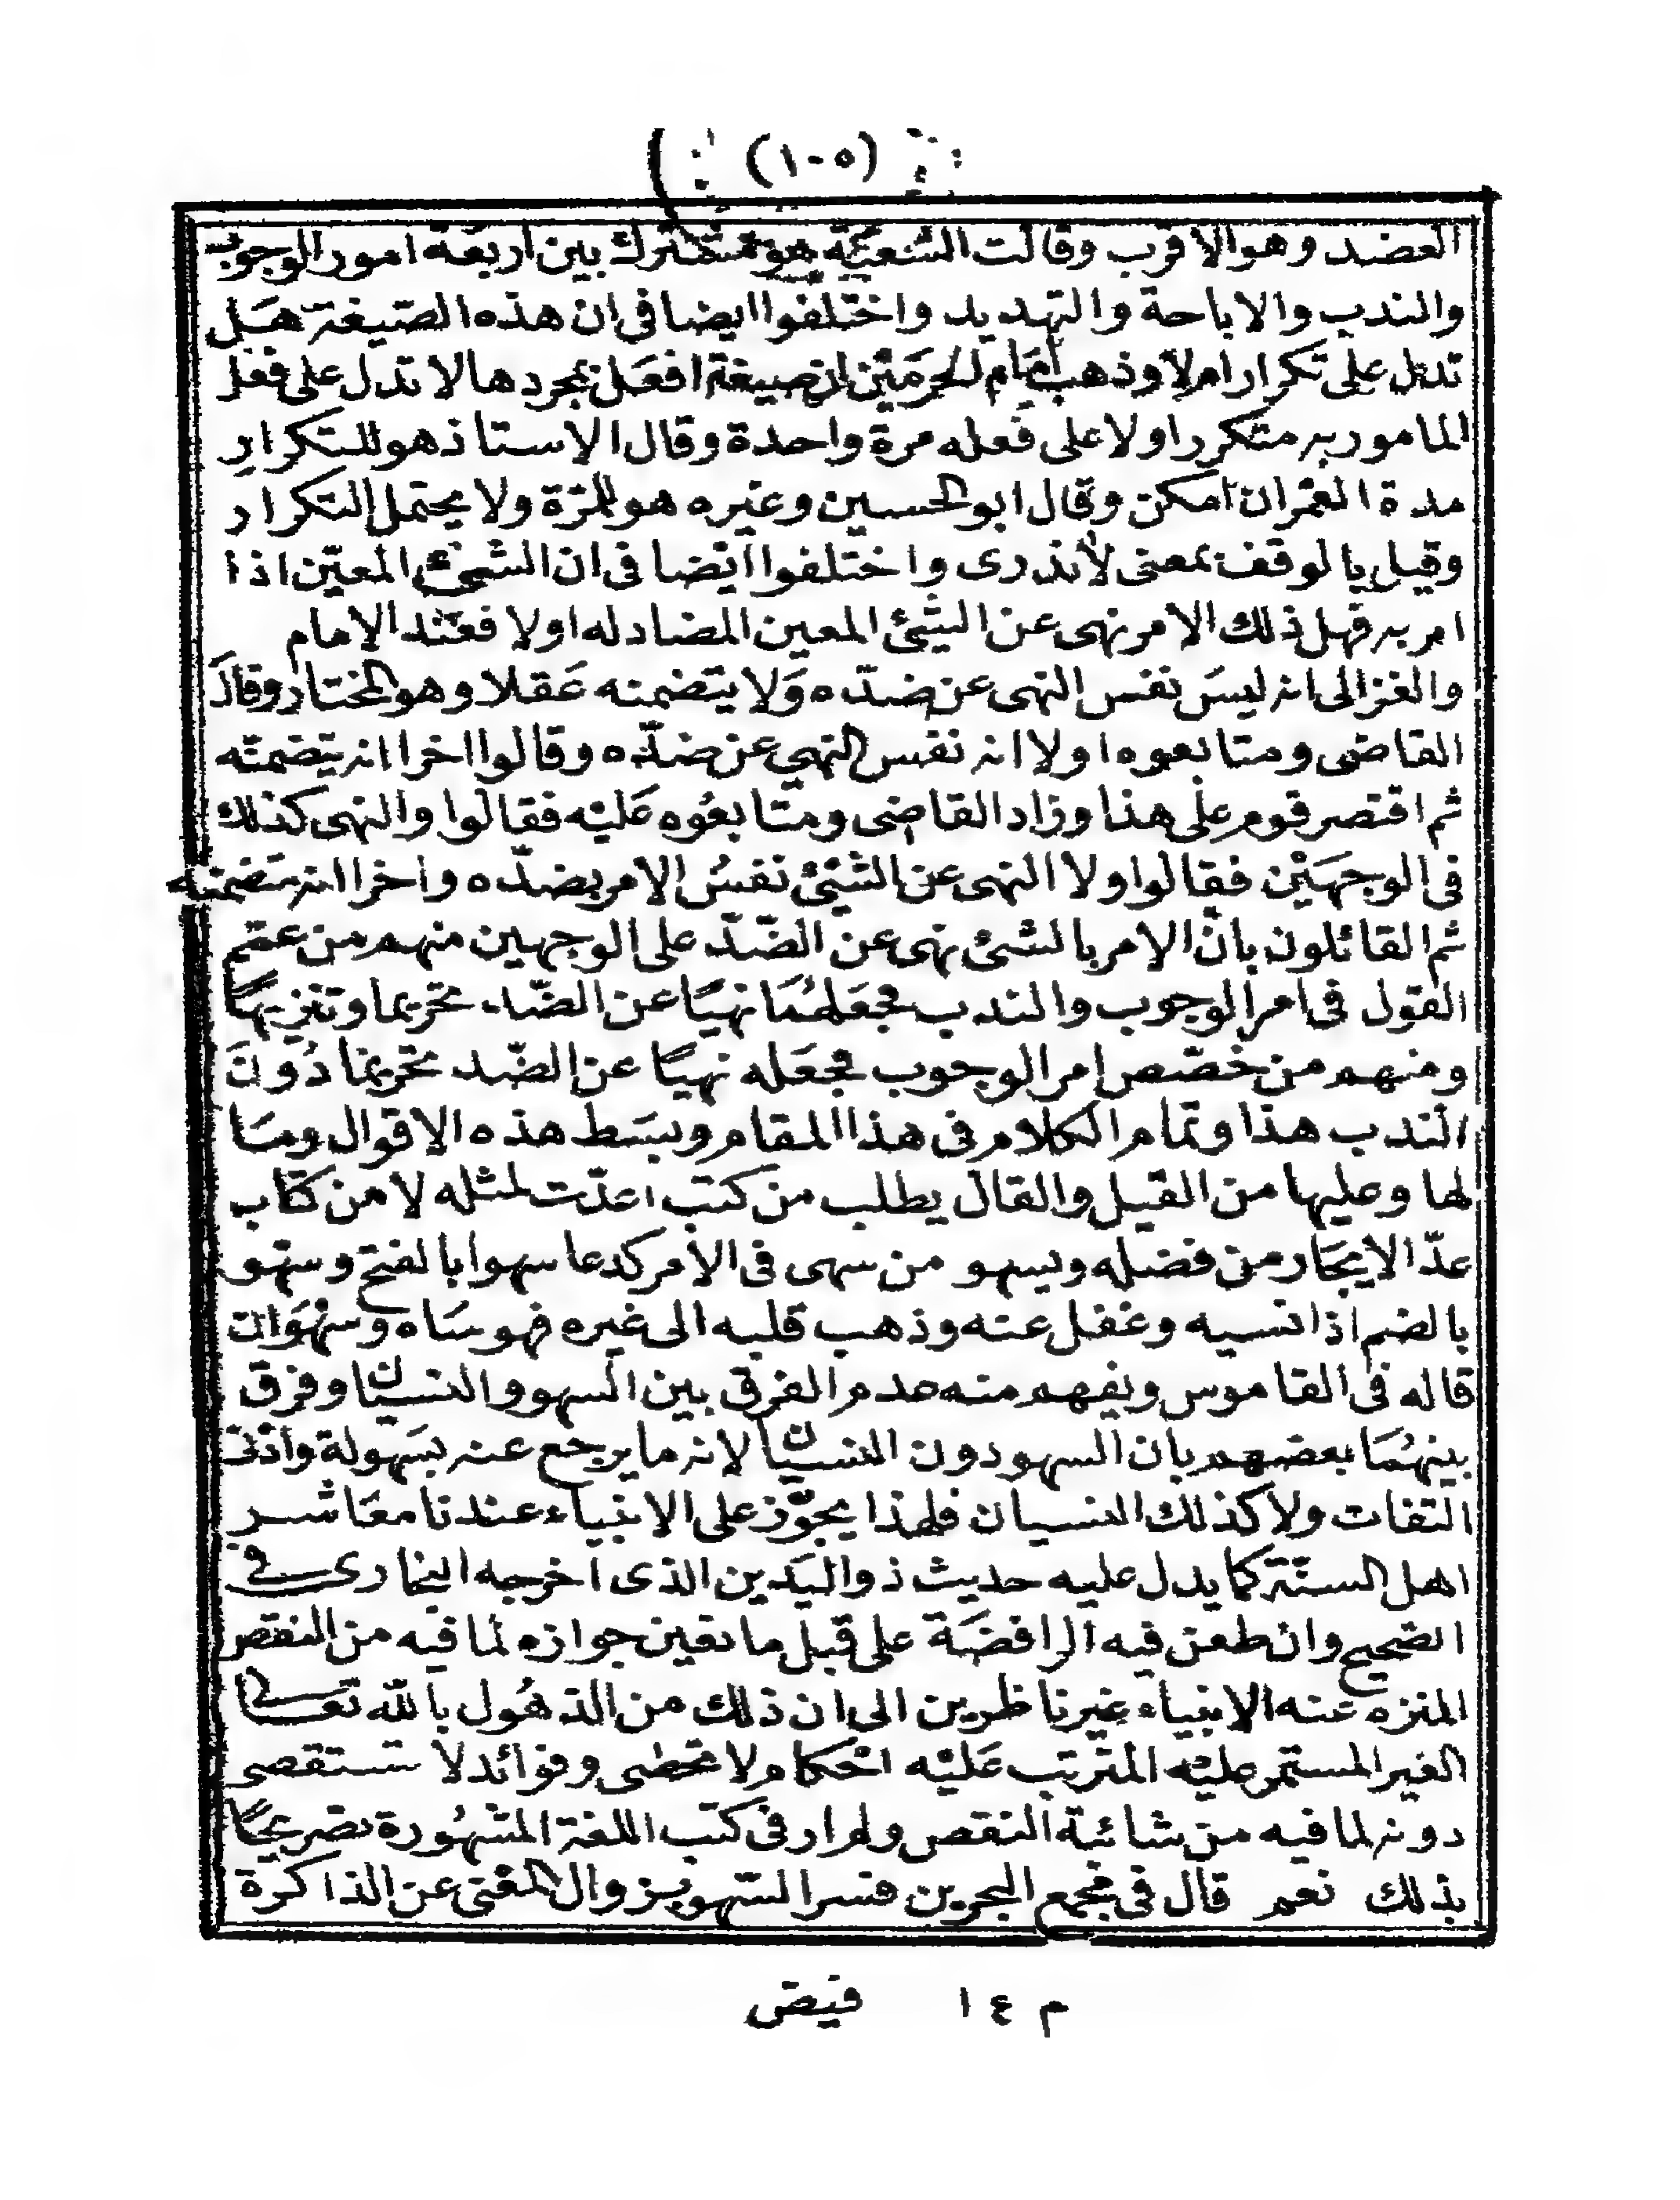 (١٠٥)
العضد وهو الاقرب وقالت الشعيّة هو مشترك بين اربعة امور الوجوب
والندب والاباحة والتهديد واختلفوا ايضا فى ان هذه الصّيغة هَل
تدل على تكرار ام لا وذهب امام الحرمَيْن ان صيغة افعَل بمجردها لا تدل على فعل
المامور به متكررا ولا على فعله مرة واحدة وقال الاستاذ هو للتكرار
مدة العمر ان امكن وقال ابو الحسين وغيره هو للمرّة ولا يحتمل التكرار
وقيل بالوقف بمعنى لا ندرى واختلفوا ايضا فى ان الشئ المعيّن اذا
امر به فهل ذلك الامر نهى عن الشئ المعين المضاد له اولا فعند الامام
والغزالى انه ليسَ نفس النهى عن ضدّه وَلا يتضمنه عَقلا وهو المختار وقالَ
القاضى ومتابعوه اولا انه نفس النهى عن ضدّه وقالوا اخرا انه يتضمنه
ثم اقتصر قوم على هذا وزاد القاضى ومتابعُوه عَليْه فقالوا والنهى كذلك
فى الوجهَيْن فقالوا ولا النهى عن الشئ نفسُ الامر بضدّه واخرا انه يتضمنه
ثم القائلون بانّ الامر بالشئ نهى عن الضّدّ على الوجهين منهم من عمّم
القول فى امر الوجوب والندب فجعَلهُمَا نهيًا عن الضّد تحريما وتنزيهًا
ومنهم من خصّص امر الوجوب فجعَله نهيًا عن الضّد تحريمًا دُونَ
الندب هذا وتمام الكلام فى هذا المقام وبسَط هذه الاقوال ومَا
لها وعليها من القيل والقال يطلب من كتب اعدّت لمثله لا من كتاب
عدّ الايجَاز من فضله ويسهو من سهى فى الامر كدعا سهوا بالفتح وسهو
بالضم اذا نسيه وغفل عنه وذهب قلبه الى غيره فهو سَاه وسهْوَان
قاله فى القاموس ويفهم منه عدم الفرق بين السهو والنسيان وفرق
بينهُمَا بعضهم بان السهو دون النسيان لانه ما يرجع عنه بسَهولة وادنى
التفات ولا كذلك النسيان فلهذا يجوّز على الانبياء عندنا معَاشر
اهل السنّة كما يدل عليه حديث ذو اليَدين الذى اخرجه البخارى فى
الصحيح وان طعن فيه الرافضَة على قبل ما نفين جوازه لما فيه من النقص
المنزه عنه الانبياء غير ناظرين الى ان ذلك من الذهُول بالله تعالى
الغير المستمر عليْه المترتب عَليْه احْكام لا تحصى وفوائد لا تستقصى
دونه لما فيه من شائبة النقص ولم ار فى كتب اللغة المشهُورة تصريحًا
بذلك نعم قال فى مجمع البحرين فسر السّهو بزوال المعْنى عن الذاكرة
م ع ١ فيض